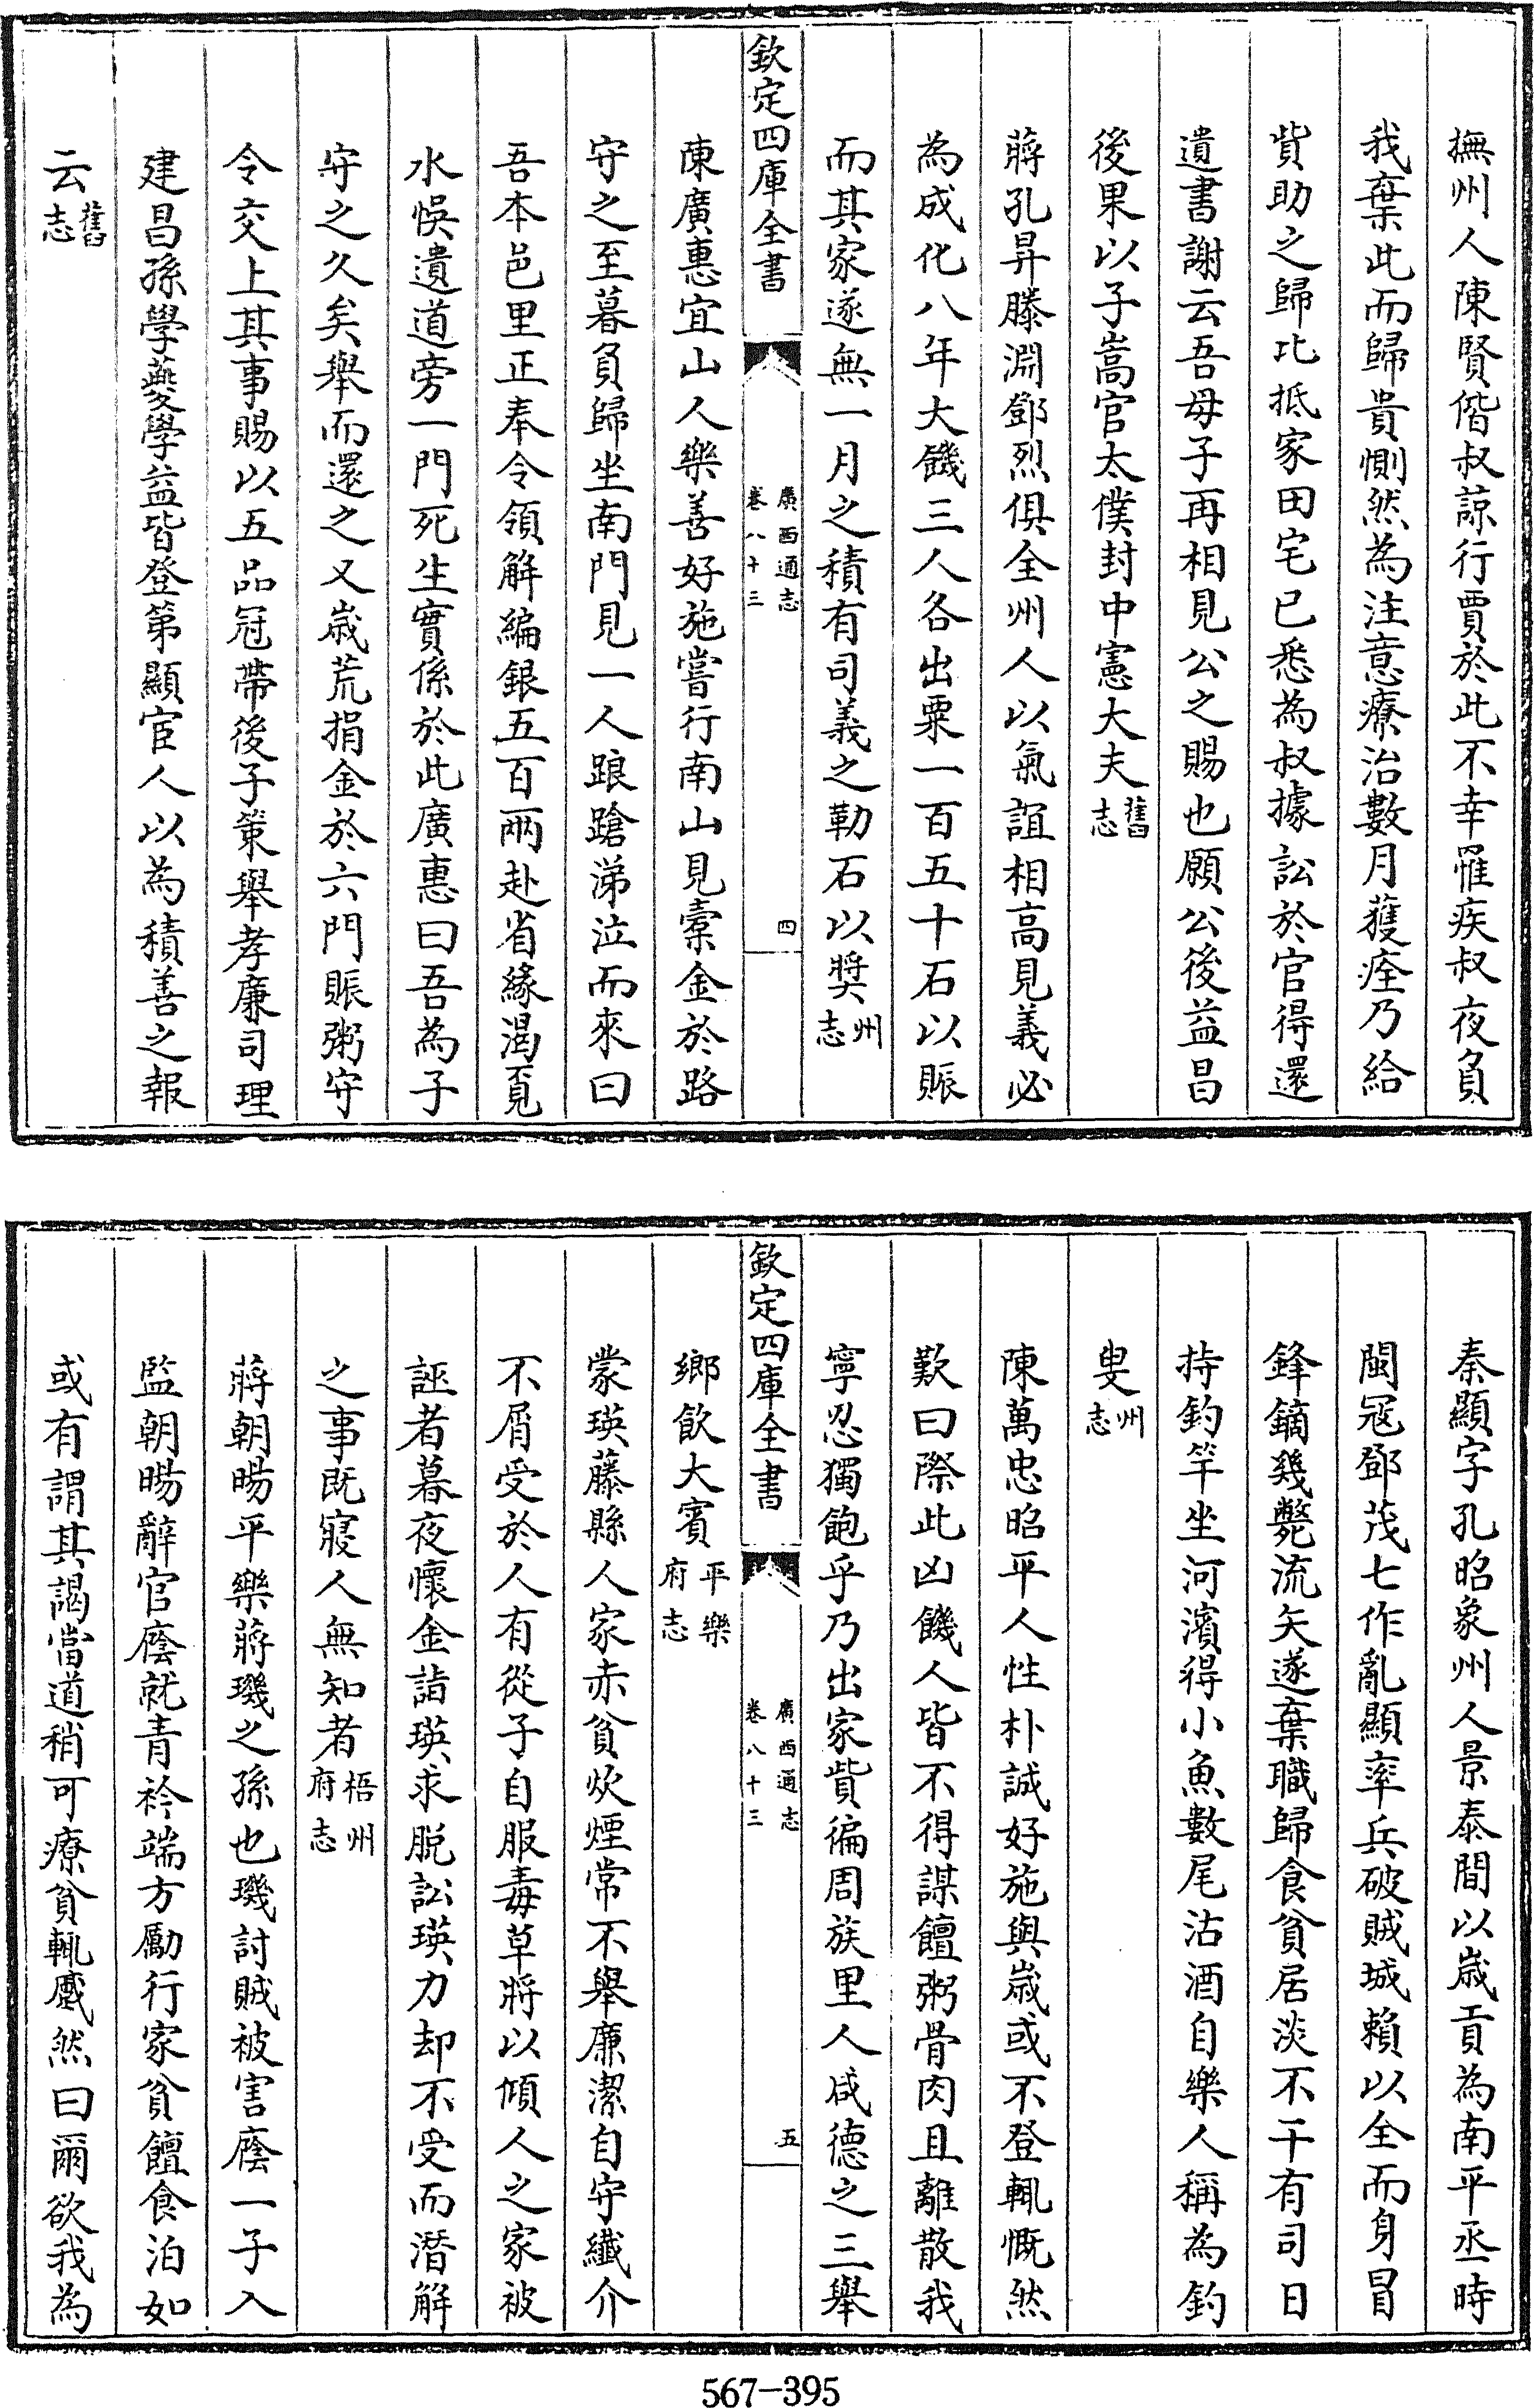 撫州人陳賢偕叔諒行賈於此不幸罹疾叔夜負
我棄此而歸貴惻然為注意療治數月獲痊乃給
貲助之歸比抵家田宅已悉為叔據訟於官得還
遺書謝云吾母子再相見公之賜也願公後益昌
後果以子嵩官太僕封中憲大夫舊志
蔣孔昇滕淵鄧烈俱全州人以氣誼相高見義必
為成化八年大饑三人各出粟一百五十石以賑
而其家遂無一月之積有司義之勒石以奬州志
欽定四庫全書 廣西通志 卷八十三 四
陳廣惠宜山人樂善好施嘗行南山見槖金於路
守之至暮負歸坐南門見一人踉蹌涕泣而來曰
吾本邑里正奉令領解編銀五百兩赴省緣渴覓
水悞遺道旁一門死生實係於此廣惠曰吾為子
守之久矣舉而還之又歲荒捐金於六門賑粥守
令交上其事賜以五品冠帶後子䇿舉孝廉司理
建昌孫學夔學益皆登第顯宦人以為積善之報
云舊志
秦顯字孔昭象州人景泰間以歲貢為南平丞時
閩冦鄧茂七作亂顯率兵破賊城賴以全而身冒
鋒鏑幾斃流矢遂棄職歸食貧居淡不干有司日
持釣竿坐河濱得小魚數尾沽酒自樂人稱為釣
叟州志
陳萬忠昭平人性朴誠好施與歲或不登輒慨然
歎曰際此凶饑人皆不得謀饘粥骨肉且離散我
寧忍獨飽乎乃出家貲徧周族里人咸德之三舉
欽定四庫全書 廣西通志 卷八十三 五
鄉飲大賓平樂府志
蒙瑛藤縣人家赤貧炊煙常不舉廉潔自守纖介
不屑受於人有從子自服毒草將以傾人之家被
誣者暮夜懷金詣瑛求脫訟瑛力却不受而潛解
之事既寢人無知者梧州府志
蔣朝暘平樂蔣璣之孫也璣討賊被害廕一子入
監朝暘辭官廕就青衿端方勵行家貧饘食泊如
或有謂其謁當道稍可療貧輒蹙然曰爾欲我為
567-395